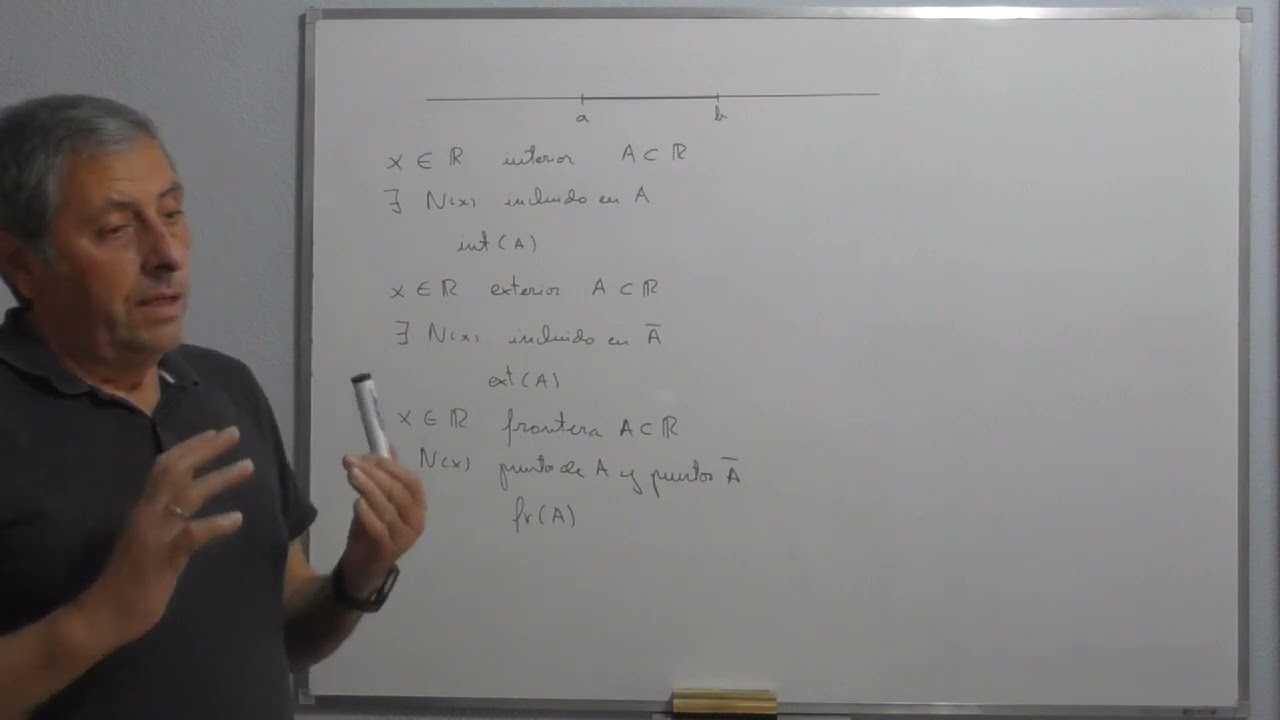 a b
x ∈ ℝ interior A ⊂ ℝ
∃ N(x) incluido en A
int(A)
x ∈ ℝ exterior A ⊂ ℝ
∃ N(x) incluido en Ā
ext(A)
x ∈ ℝ frontera A ⊂ ℝ
N(x) puntos de A y puntos Ā
fr(A)